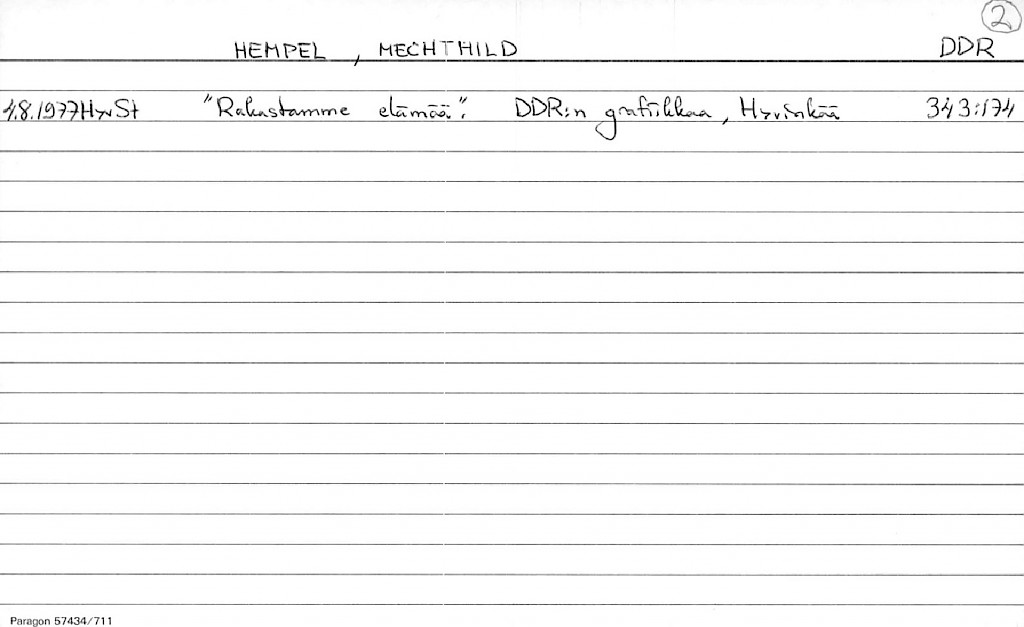 2
HEMPEL, MECHTHILD DDR
4.8.1977 HyvSt "Rakastamme elämää". DDR:n grafiikkaa, Hyvinkää 343:174
Paragon 57434/711